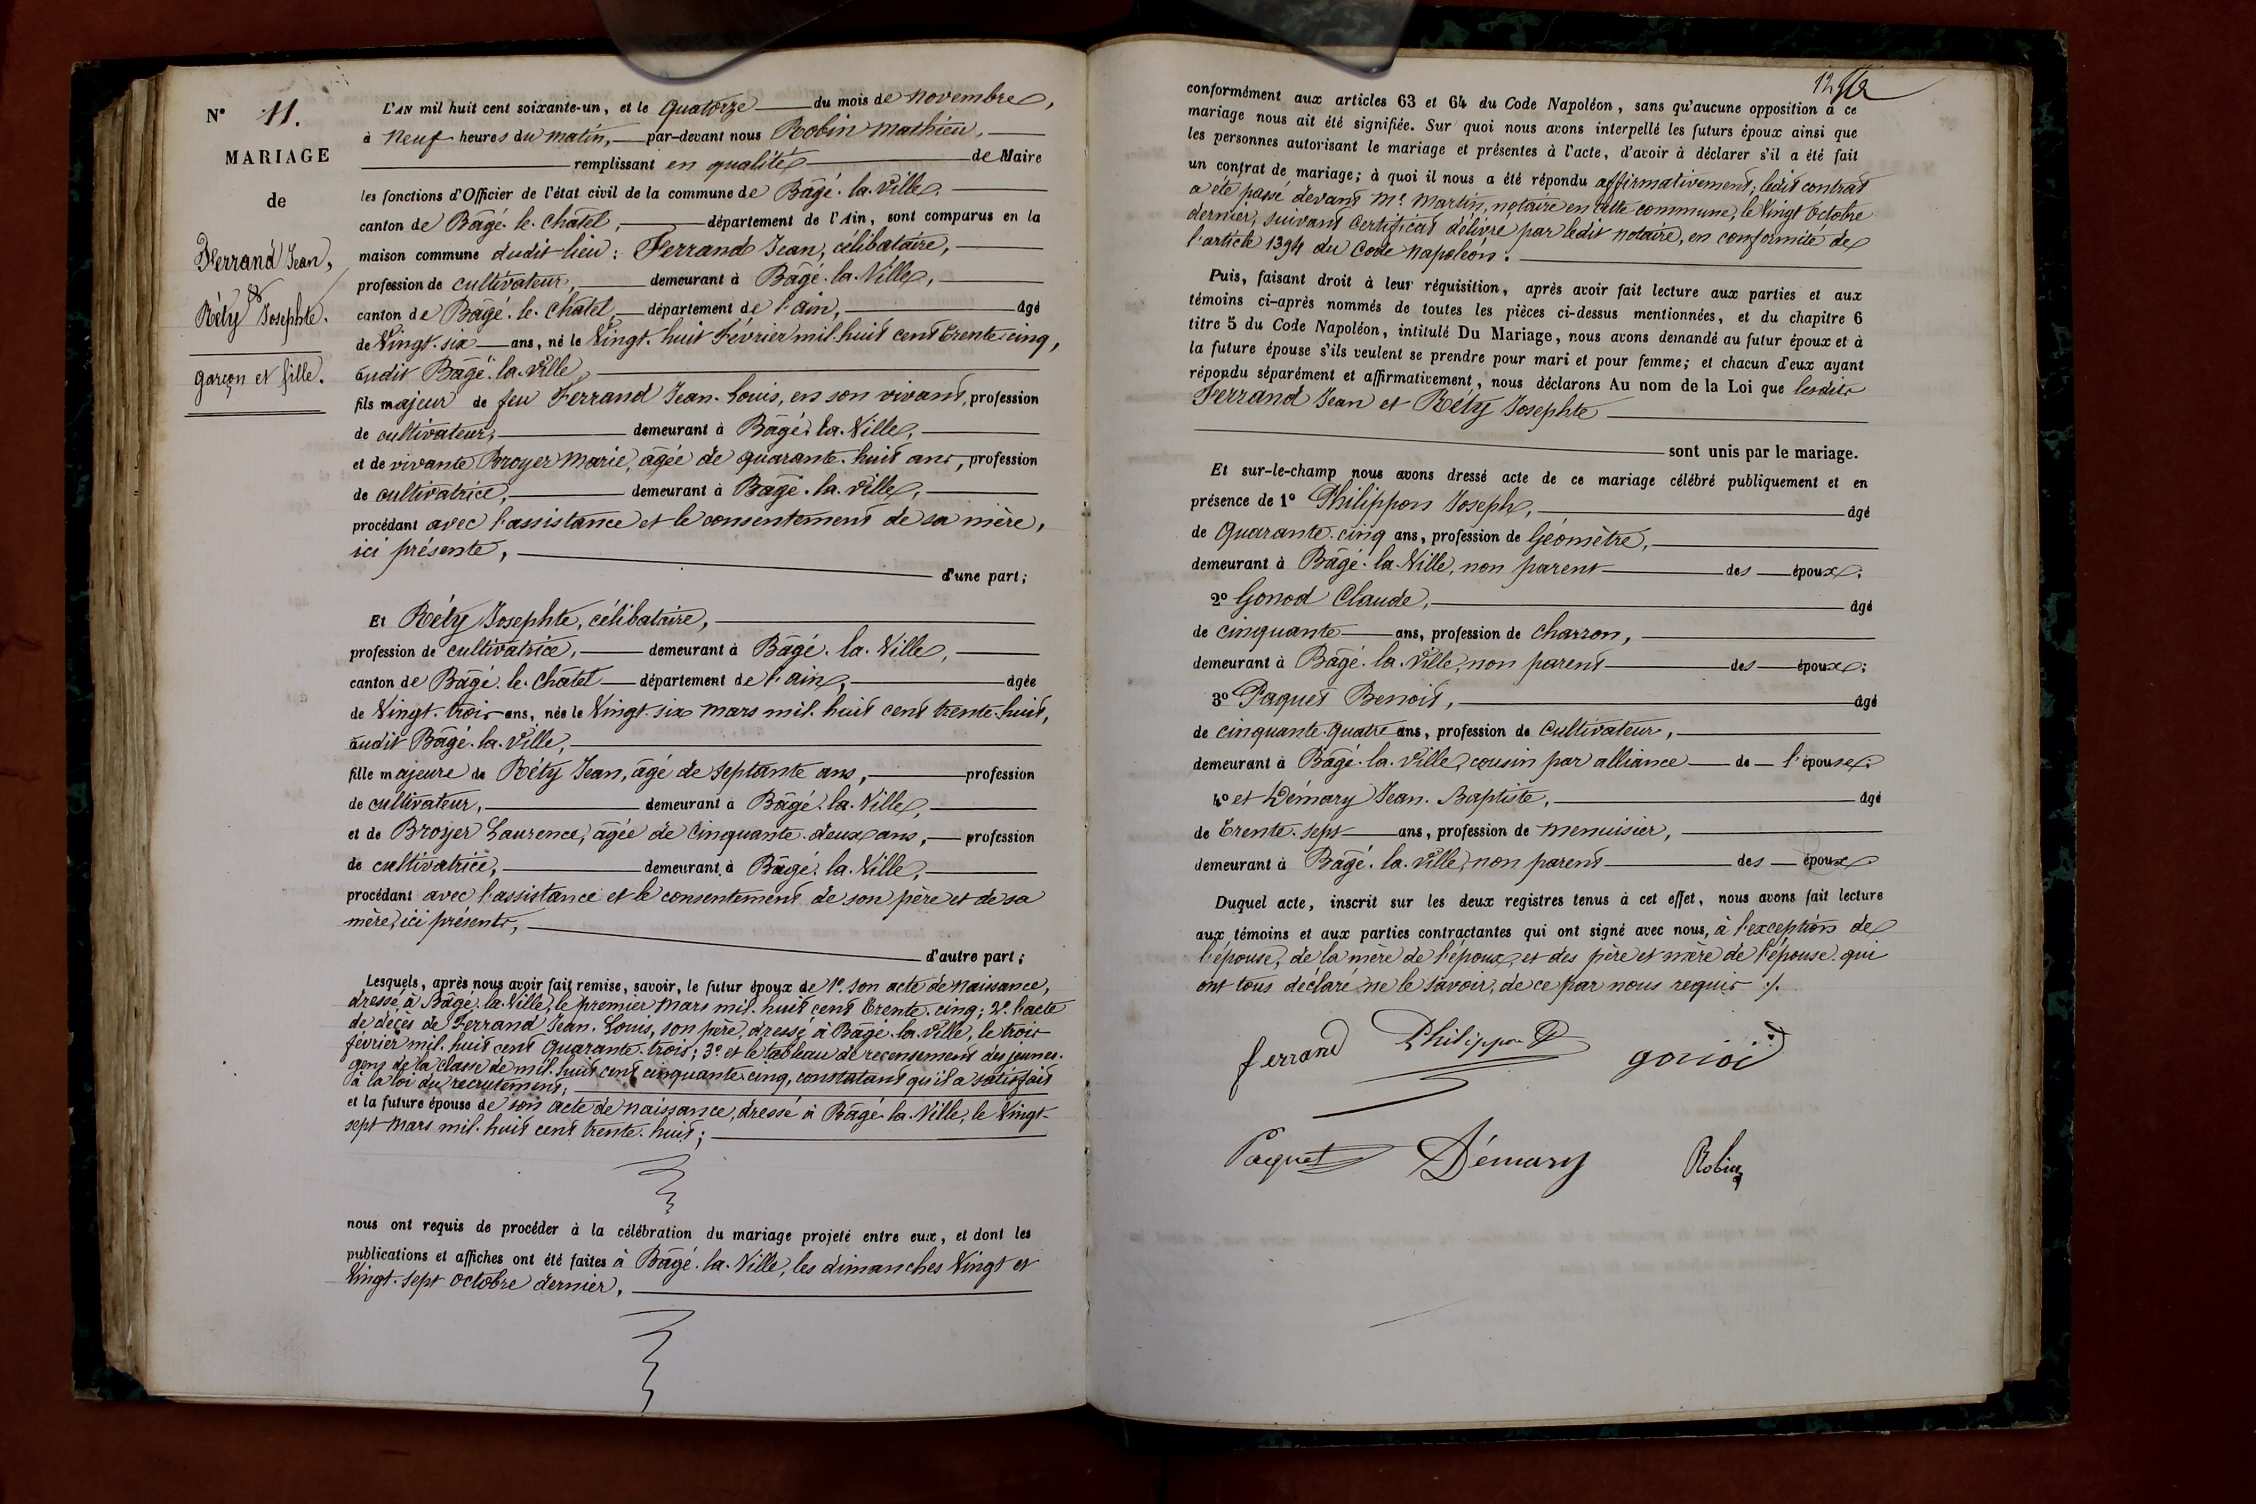 N° 11.
MARIAGE
de
Ferrand Jean,
&
Réty Josephte.
garçon et fille.
L'AN mil huit cent soixante-un, et le quatorze du mois de novembre,
à neuf heures du matin, par-devant nous Robin Mathieu,
remplissant en qualité de Maire
les fonctions d'Officier de l'état civil de la commune de Bâgé-la-Ville,
canton de Bâgé-le-Châtel, département de l'Ain, sont comparus en la
maison commune dudit lieu : Ferrand Jean, célibataire,
profession de cultivateur, demeurant à Bâgé-la-Ville,
canton de Bâgé-le-Châtel département de l'ain, âgé
de Vingt-six ans, né le Vingt-huit Février mil-huit cent trente-cinq,
audit Bâgé-la-Ville,
fils majeur de feu Ferrand Jean-Louis, en son vivant, profession
de cultivateur, demeurant à Bâgé-la-Ville,
et de vivante Broyer Marie, âgée de quarante-huit ans, profession
de cultivatrice, demeurant à Bâgé-la-Ville,
procédant avec l'assistance et le consentement de sa mère,
ici présente,
d'une part;
Et Réty Josephte, célibataire,
profession de cultivatrice, demeurant à Bâgé-la-Ville,
canton de Bâgé-le-Châtel département de l'ain, âgée
de Vingt-trois ans, née le Vingt-six mars mil-huit cent trente-huit,
audit Bâgé-la-Ville,
fille majeure de Réty Jean, âgé de septante ans, profession
de cultivateur, demeurant à Bâgé-la-Ville,
et de Broyer Laurence, âgée de cinquante-deux ans, profession
de cultivatrice, demeurant à Bâgé-la-Ville,
procédant avec l'assistance et le consentement de son père et de sa
mère, ici présents,
d'autre part;
Lesquels, après nous avoir fait remise, savoir, le futur époux de 1°. son acte de naissance,
dressé à Bâgé-la-Ville, le premier mars mil-huit cent trente-cinq; 2°. l'acte
de décès de Ferrand Jean-Louis, son père, dressé à Bâgé-la-Ville, le trois
février mil-huit cent quarante-trois; 3°. et le tableau de recensement des jeunes-
gens de la classe de mil-huit cent cinquante-cinq, constatant qu'il a satisfait
à la loi du recrutement,
et la future épouse de son acte de naissance, dressé à Bâgé-la-Ville, le Vingt-
sept mars mil-huit cent trente-huit;
nous ont requis de procéder à la célébration du mariage projeté entre eux, et dont les
publications et affiches ont été faites à Bâgé-la-Ville, les dimanches Vingt et
Vingt-sept octobre dernier,
12
conformément aux articles 63 et 64 du Code Napoléon, sans qu'aucune opposition à ce
mariage nous ait été signifiée. Sur quoi nous avons interpellé les futurs époux ainsi que
les personnes autorisant le mariage et présentes à l'acte, d'avoir à déclarer s'il a été fait
un contrat de mariage; à quoi il nous a été répondu affirmativement; ledit contrat
a été passé devant Mr. Martin, notaire en cette commune, le Vingt octobre
dernier, suivant certificat délivré par ledit notaire, en conformité de
l'article 1394 du Code Napoléon.
Puis, faisant droit à leur réquisition, après avoir fait lecture aux parties et aux
témoins ci-après nommés de toutes les pièces ci-dessus mentionnées, et du chapitre 6
titre 5 du Code Napoléon, intitulé Du Mariage, nous avons demandé au futur époux et à
la future épouse s'ils veulent se prendre pour mari et pour femme; et chacun d'eux ayant
répondu séparément et affirmativement, nous déclarons Au nom de la Loi que lesdits
Ferrand Jean et Réty Josephte
sont unis par le mariage.
Et sur-le-champ nous avons dressé acte de ce mariage célébré publiquement et en
présence de 1° Philippon Joseph, âgé
de quarante-cinq ans, profession de Géomètre,
demeurant à Bâgé-la-Ville, non parent des époux;
2° Gonod Claude, âgé
de cinquante ans, profession de charron,
demeurant à Bâgé-la-Ville, non parent des époux;
3° Paquet Benoit, âgé
de cinquante-quatre ans, profession de cultivateur,
demeurant à Bâgé-la-Ville, cousin par alliance de l'épouse;
4° et Démary Jean-Baptiste, âgé
de trente-sept ans, profession de menuisier,
demeurant à Bâgé-la-Ville, non parent des époux
Duquel acte, inscrit sur les deux registres tenus à cet effet, nous avons fait lecture
aux témoins et aux parties contractantes qui ont signé avec nous, à l'exception de
l'épouse, de la mère de l'époux, et des père et mère de l'épouse qui
ont tous déclaré ne le savoir, de ce par nous requis ./.
ferrand Philippon gonod
Paquet Démary Robin